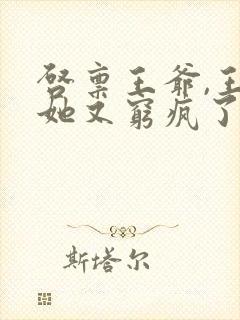 启禀王爷,王
她又窮疯了
斯塔尔